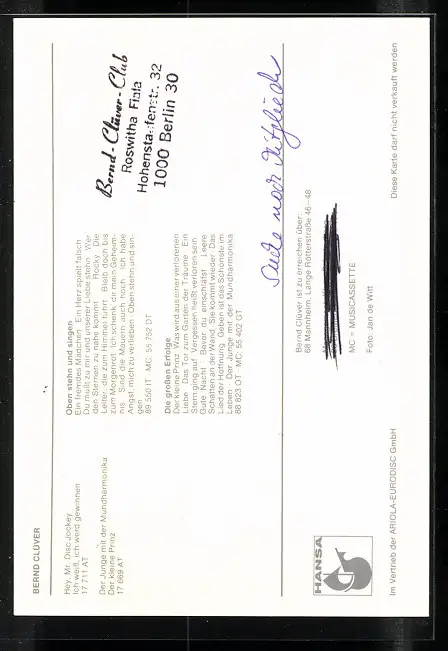 BERND CLÜVER
Hey, Mr. Disc Jockey
Ich weiß, ich werd gewinnen
17 711 AT
Der Junge mit der Mundharmonika
Der kleine Prinz
17 069 AT
Oben stehn und singen
Ein fremdes Mädchen · Ein Herz spielt falsch
Du mußt zu mir und unserer Liebe stehn · Wer
den Sternen zu nahe kommt · Rocky · Die
Leiter, die zum Himmel führt · Bleib doch bis
zum Morgenrot · Ich schenk dir mein Geheim-
nis · Sind die Mauern auch hoch · Ich habe
Angst, mich zu verlieben · Oben stehn und sin-
gen
89 550 IT · MC: 55 752 DT
Die großen Erfolge
Der kleine Prinz · Was wird aus einer verlorenen
Liebe · Das Tor zum Garten der Träume · Ein
Stern ging auf · Vergessen heißt verloren sein
Gute Nacht · Bevor du einschläfst · Leere
Schatten an der Wand · Sie kommt wieder · Das
Lied der Hoffnung · Geben ist das Schönste im
Leben · Der Junge mit der Mundharmonika
88 823 OT · MC: 55 402 DT
Bernd-Clüver-Club
Roswitha Fiala
Hohenstaufenstr. 32
1000 Berlin 30
Suche noch Mitglieder
Bernd Clüver ist zu erreichen über:
68 Mannheim, Lange Rötterstraße 46–48
MC = MUSICASSETTE
Foto: Jan de Witt
HANSA
Im Vertrieb der ARIOLA-EURODISC GmbH
Diese Karte darf nicht verkauft werden